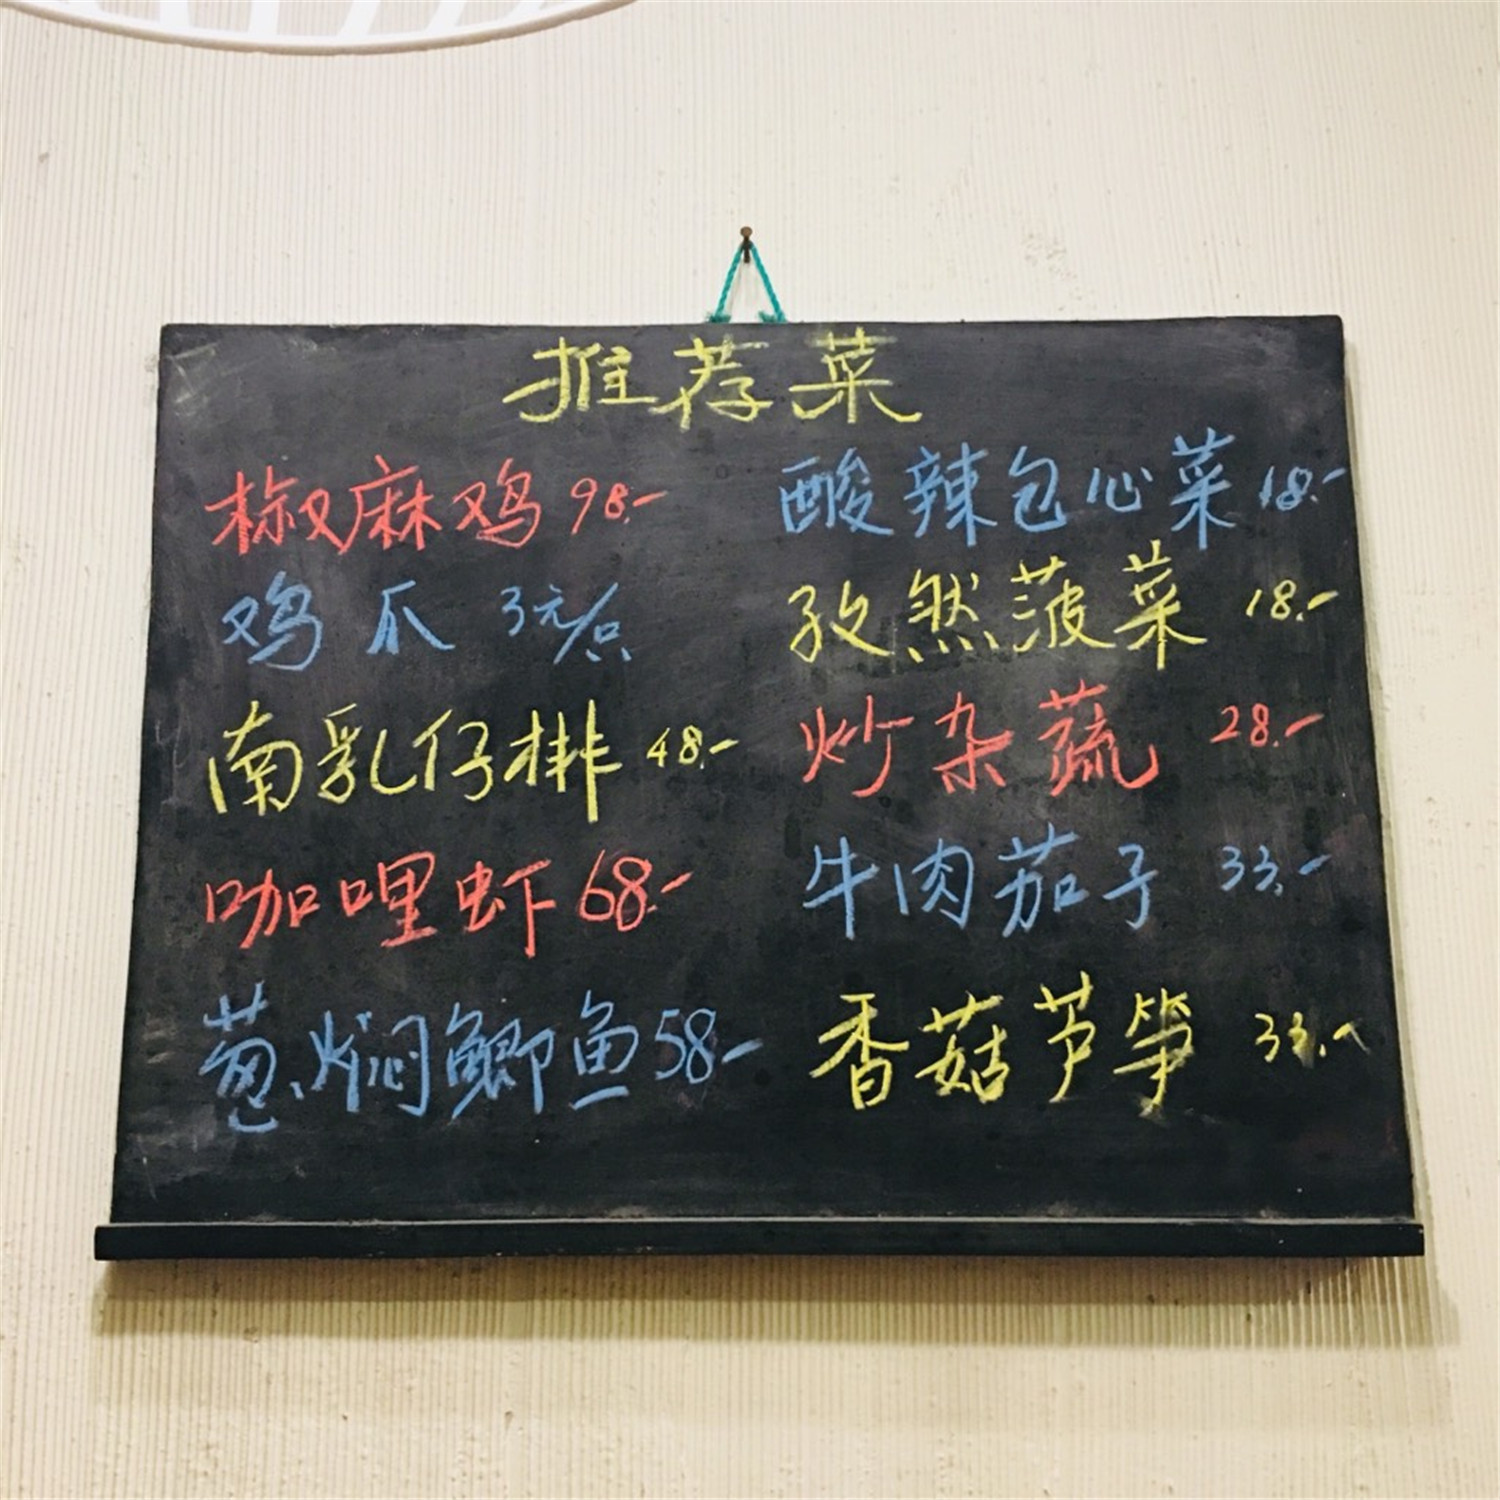 推荐菜
椒麻鸡 98.-
鸡爪 3元/只
南乳仔排 48.-
咖哩虾 68.-
葱焖鲫鱼 58-
酸辣包心菜 18.-
孜然菠菜 18.-
炒杂蔬 28.-
牛肉茄子 33.-
香菇芦笋 33.-